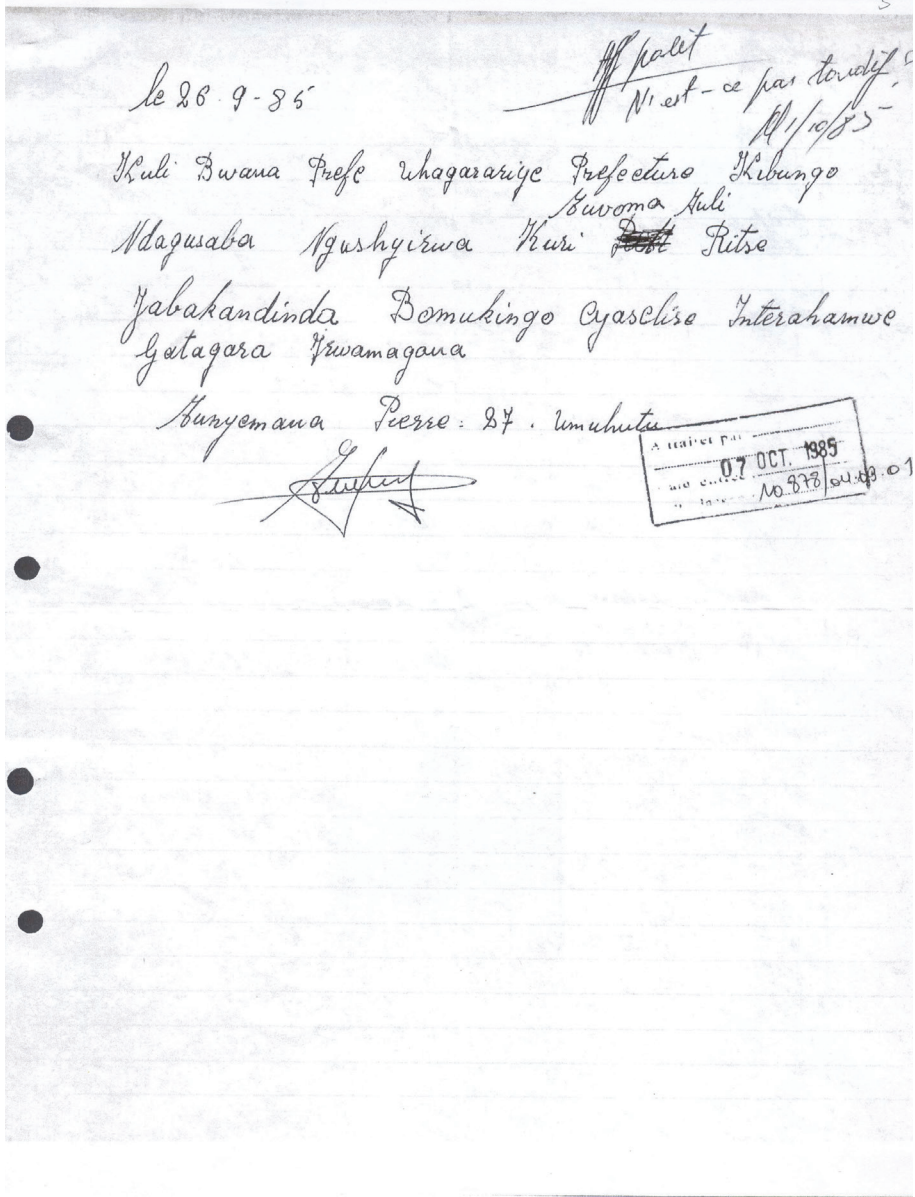 Aff polit
N'est-ce pas tardif?
1/10/85
le 26.9-85
Kuli Bwana Prefe Uhagarariye Prefecture Kibungo
Ndagusaba Ngushyirwa Kuri Ritse
Yabakandinda Bomukingo Cyaselire Interahamwe
Gatagara Yrwamagana
Munyemana Pierre: 27. Umuhutu
A traiter par
07 OCT. 1985
No 878/04.03.01